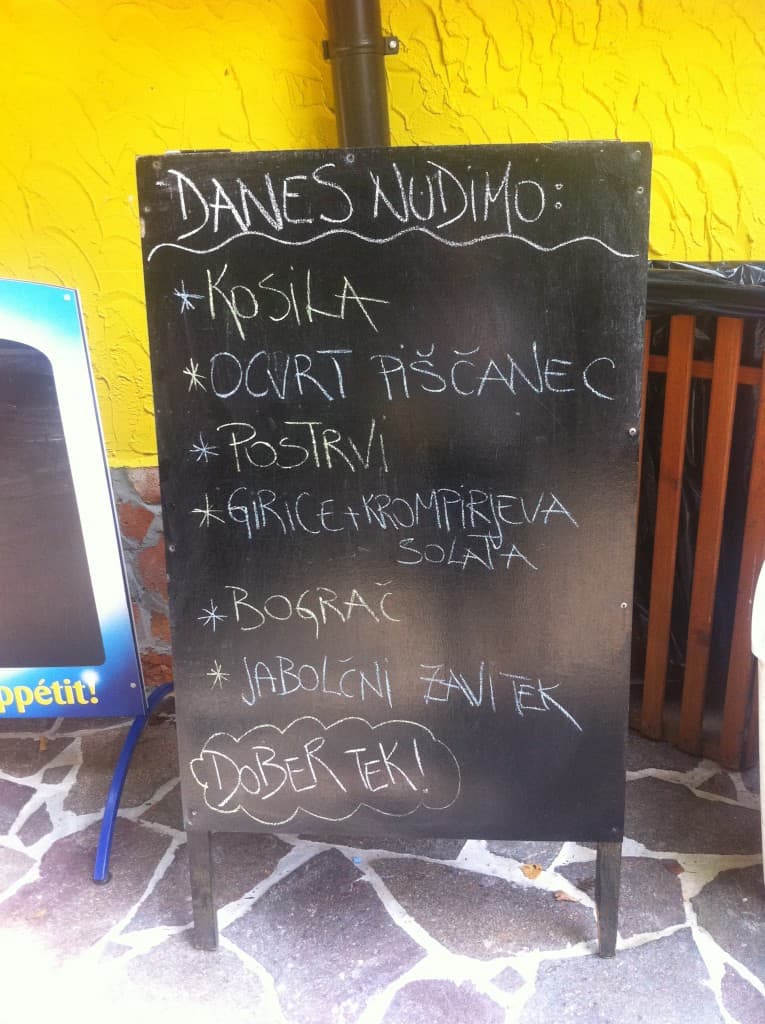 DANES NUDIMO:
* KOSILA
* OCVRT PIŠČANEC
* POSTRVI
* GIRICE + KROMPIRJEVA
SOLATA
* BOGRAČ
* JABOLČNI ZAVITEK
DOBER TEK!
ppétit!